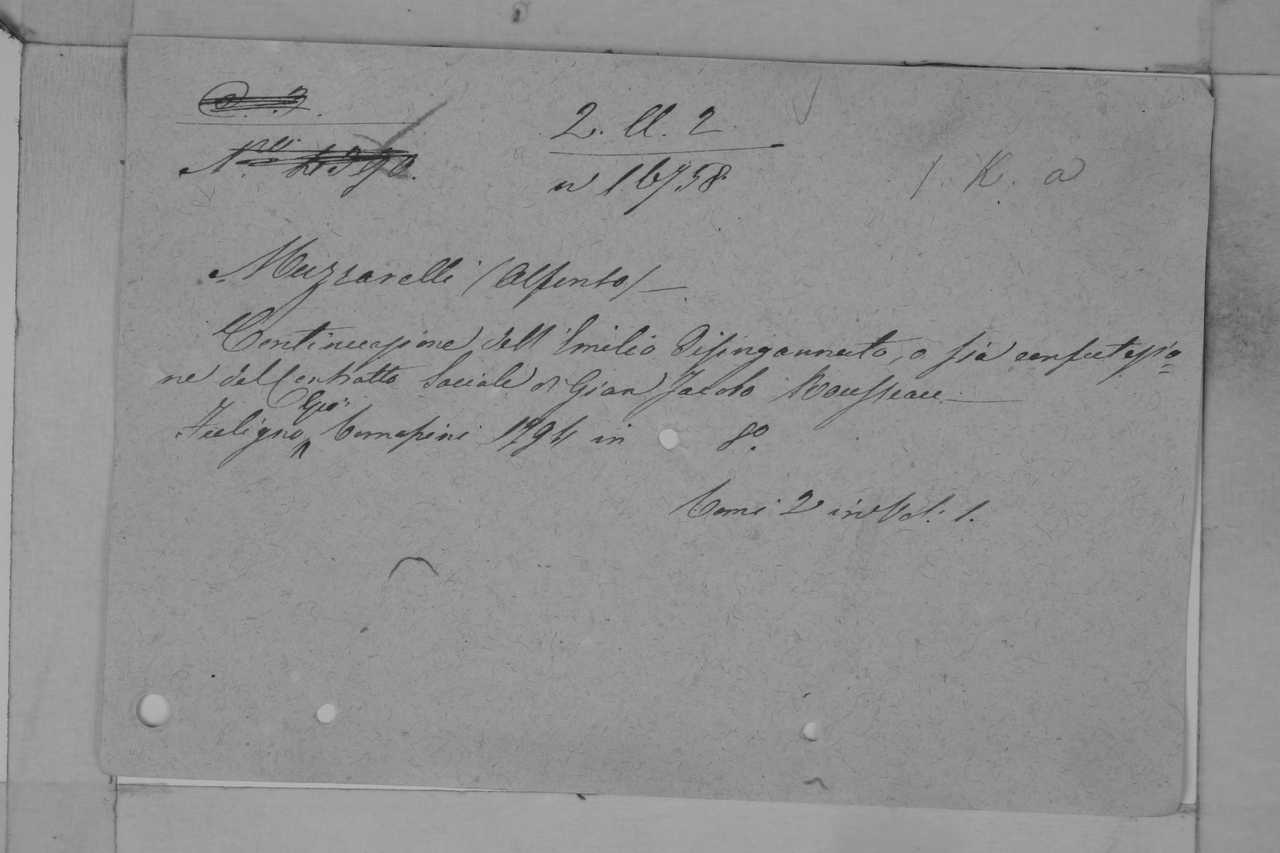 2. U. 2
n 16758
1. K. a
Muzzarelli (Alfonso)
Continuazione dell'Emilio Disingannato, o sia confutazio=
ne del Contratto Sociale di Gian Jacobo Rousseau
Fuligno Gio: Tomasini 1794 in 8º.
Tomi 2 in Vol: 1.